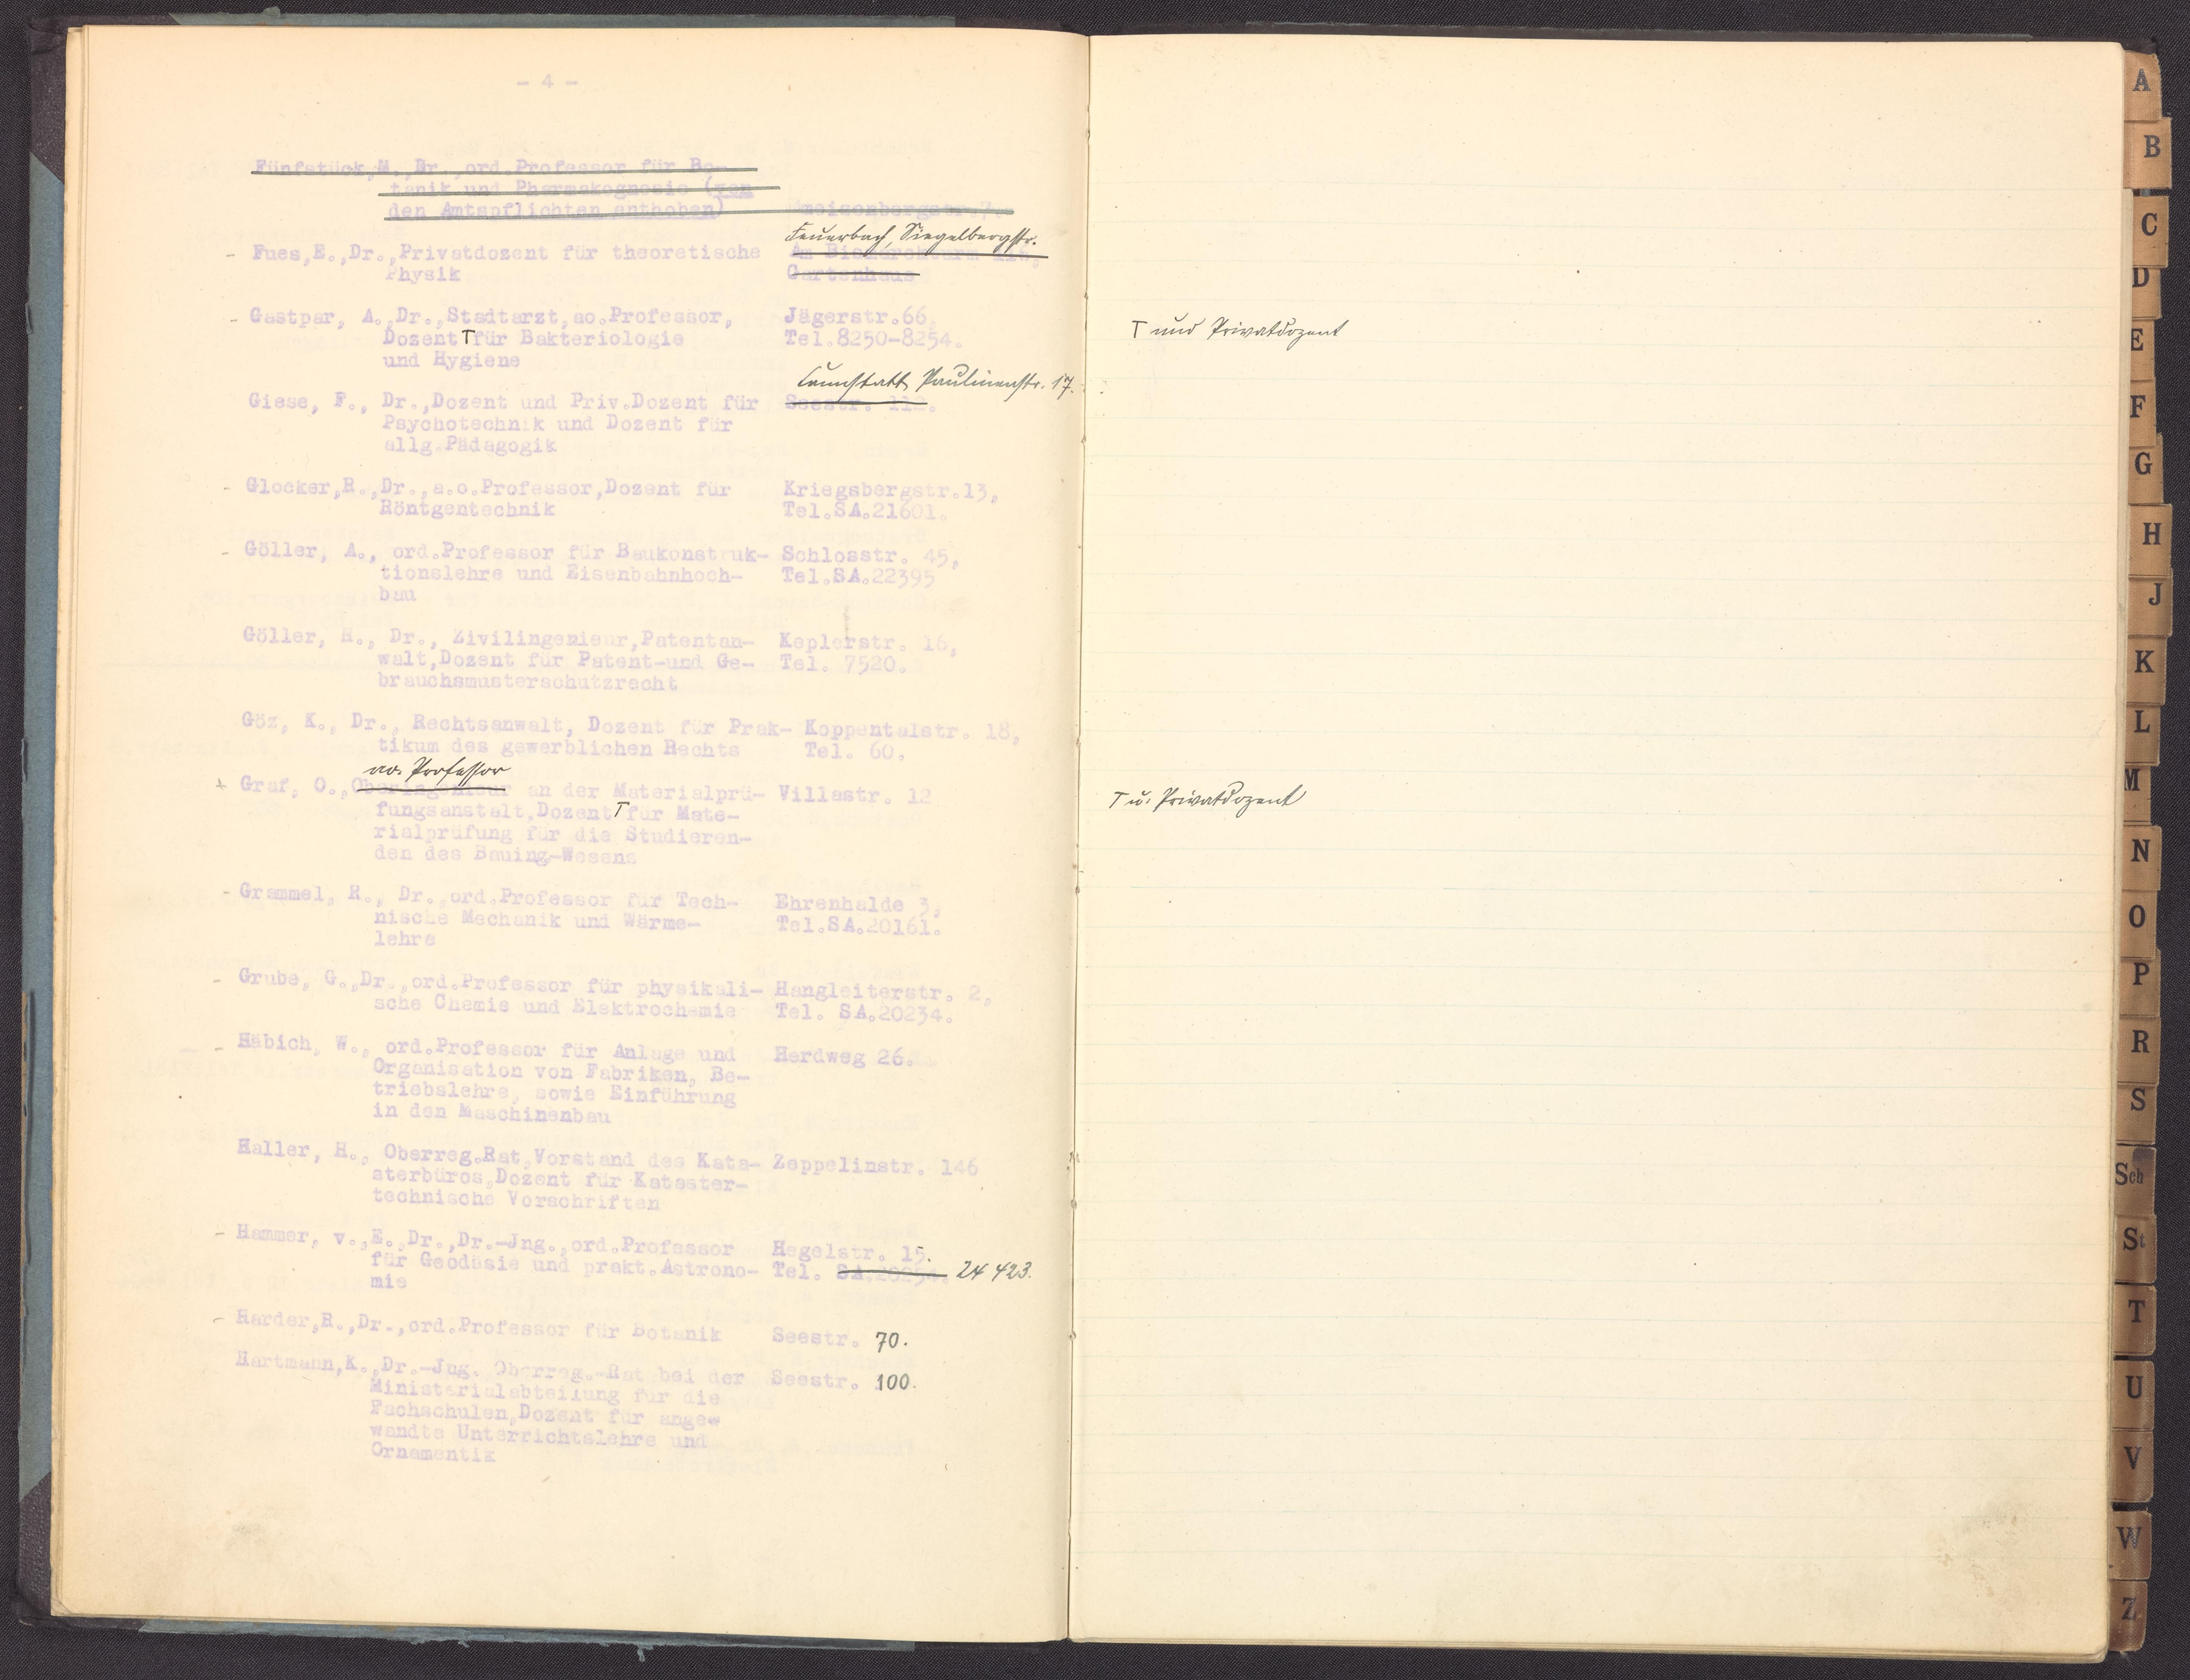 - 4 -
Fünfstück,M.,Dr.,ord.Professor für Bo-
tanik und Pharmakognosie (von
den Amtspflichten enthoben) Ameisenbergstr.7.
Feuerbach, Siegelbergstr.
- Fues,E.,Dr.,Privatdozent für theoretische Am Bismarckturm
Physik Gartenhaus
- Gastpar, A.,Dr.,Stadtarzt,ao.Professor, Jägerstr.66,
Dozent T für Bakteriologie Tel.8250-8254.
und Hygiene
T und Privatdozent
Cannstatt, Paulinenstr. 17.
Giese, F., Dr.,Dozent und Priv.Dozent für Seestr. 112.
Psychotechnik und Dozent für
allg.Pädagogik
- Glocker,R.,Dr.,a.o.Professor,Dozent für Kriegsbergstr.13,
Röntgentechnik Tel.SA.21601.
- Göller, A., ord.Professor für Baukonstruk- Schlosstr. 45,
tionslehre und Eisenbahnhoch- Tel.SA.22395
bau
Göller, H., Dr., Zivilingenieur,Patentan- Keplerstr. 16,
walt,Dozent für Patent-und Ge- Tel. 7520.
brauchsmusterschutzrecht
Göz, K., Dr., Rechtsanwalt, Dozent für Prak- Koppentalstr. 18,
tikum des gewerblichen Rechts Tel. 60.
ao. Professor
+ Graf, O.,Oberingenieur an der Materialprü- Villastr. 12
fungsanstalt,Dozent T für Mate-
rialprüfung für die Studieren-
den des Bauing-Wesens
T u. Privatdozent
- Grammel, R., Dr.,ord.Professor für Tech- Ehrenhalde 3,
nische Mechanik und Wärme- Tel.SA.20161.
lehre
- Grube, G.,Dr.,ord.Professor für physikali- Hangleiterstr. 2,
sche Chemie und Elektrochemie Tel. SA.20234.
- Häbich, W., ord.Professor für Anlage und Herdweg 26.
Organisation von Fabriken, Be-
triebslehre, sowie Einführung
in den Maschinenbau
Haller, H., Oberreg.Rat,Vorstand des Kata- Zeppelinstr. 146
sterbüros,Dozent für Kataster-
technische Vorschriften
- Hammer, v.,E.,Dr.,Dr.-Jng.,ord.Professor Hegelstr. 15.
für Geodäsie und prakt.Astrono- Tel. SA.20254. 24 423.
mie
- Harder,R.,Dr.,ord.Professor für Botanik Seestr. 70.
Hartmann,K.,Dr.-Jng. Oberreg.-Rat bei der Seestr. 100.
Ministerialabteilung für die
Fachschulen,Dozent für ange-
wandte Unterrichtslehre und
Ornamentik
A
B
C
D
E
F
G
H
J
K
L
M
N
O
P
R
S
Sch
St
T
U
V
W
Z